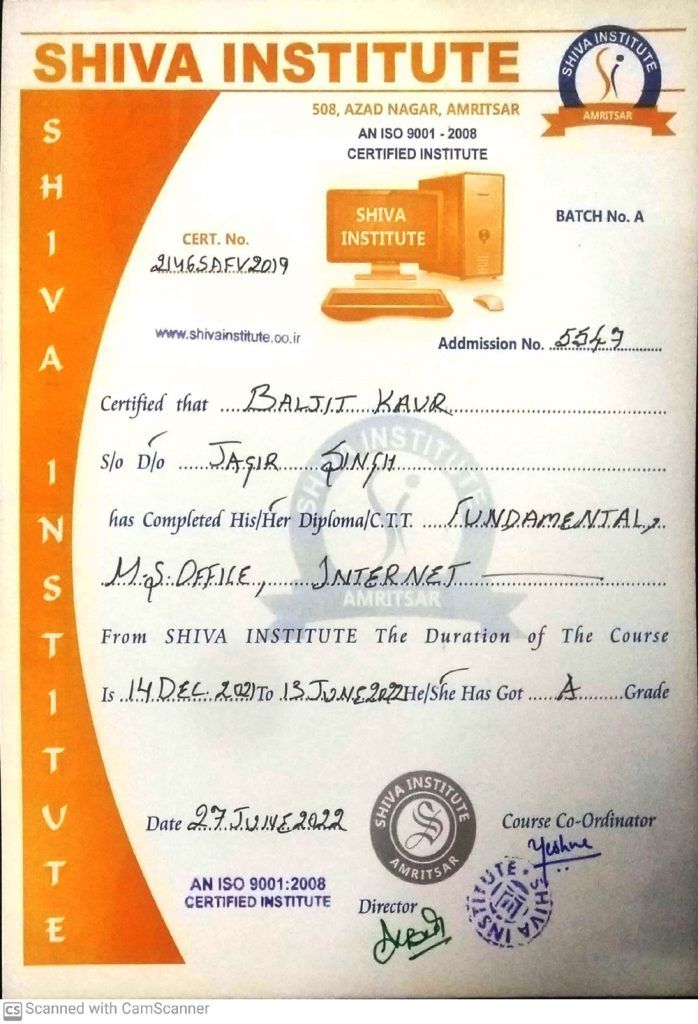 SHIVA INSTITUTE
SHIVA INSTITUTE
AMRITSAR
508, AZAD NAGAR, AMRITSAR
AN ISO 9001 - 2008
CERTIFIED INSTITUTE
SHIVA INSTITUTE
SHIVA
INSTITUTE
BATCH No. A
CERT. No.
2146SAFV2019
www.shivainstitute.oo.ir
Addmission No. 5547
Certified that BALJIT KAUR
S/o D/o JAGIR SINGH
has Completed His/Her Diploma/C.T.T. FUNDAMENTAL,
M.S. OFFICE, INTERNET
SHIVA INSTITUTE
AMRITSAR
From SHIVA INSTITUTE The Duration of The Course
Is 14 DEC. 2021 To 13 JUNE 2022 He/She Has Got A Grade
Date 27 JUNE 2022
SHIVA INSTITUTE
AMRITSAR
Course Co-Ordinator
AN ISO 9001:2008
CERTIFIED INSTITUTE
Director
SHIVA INSTITUTE
CS Scanned with CamScanner